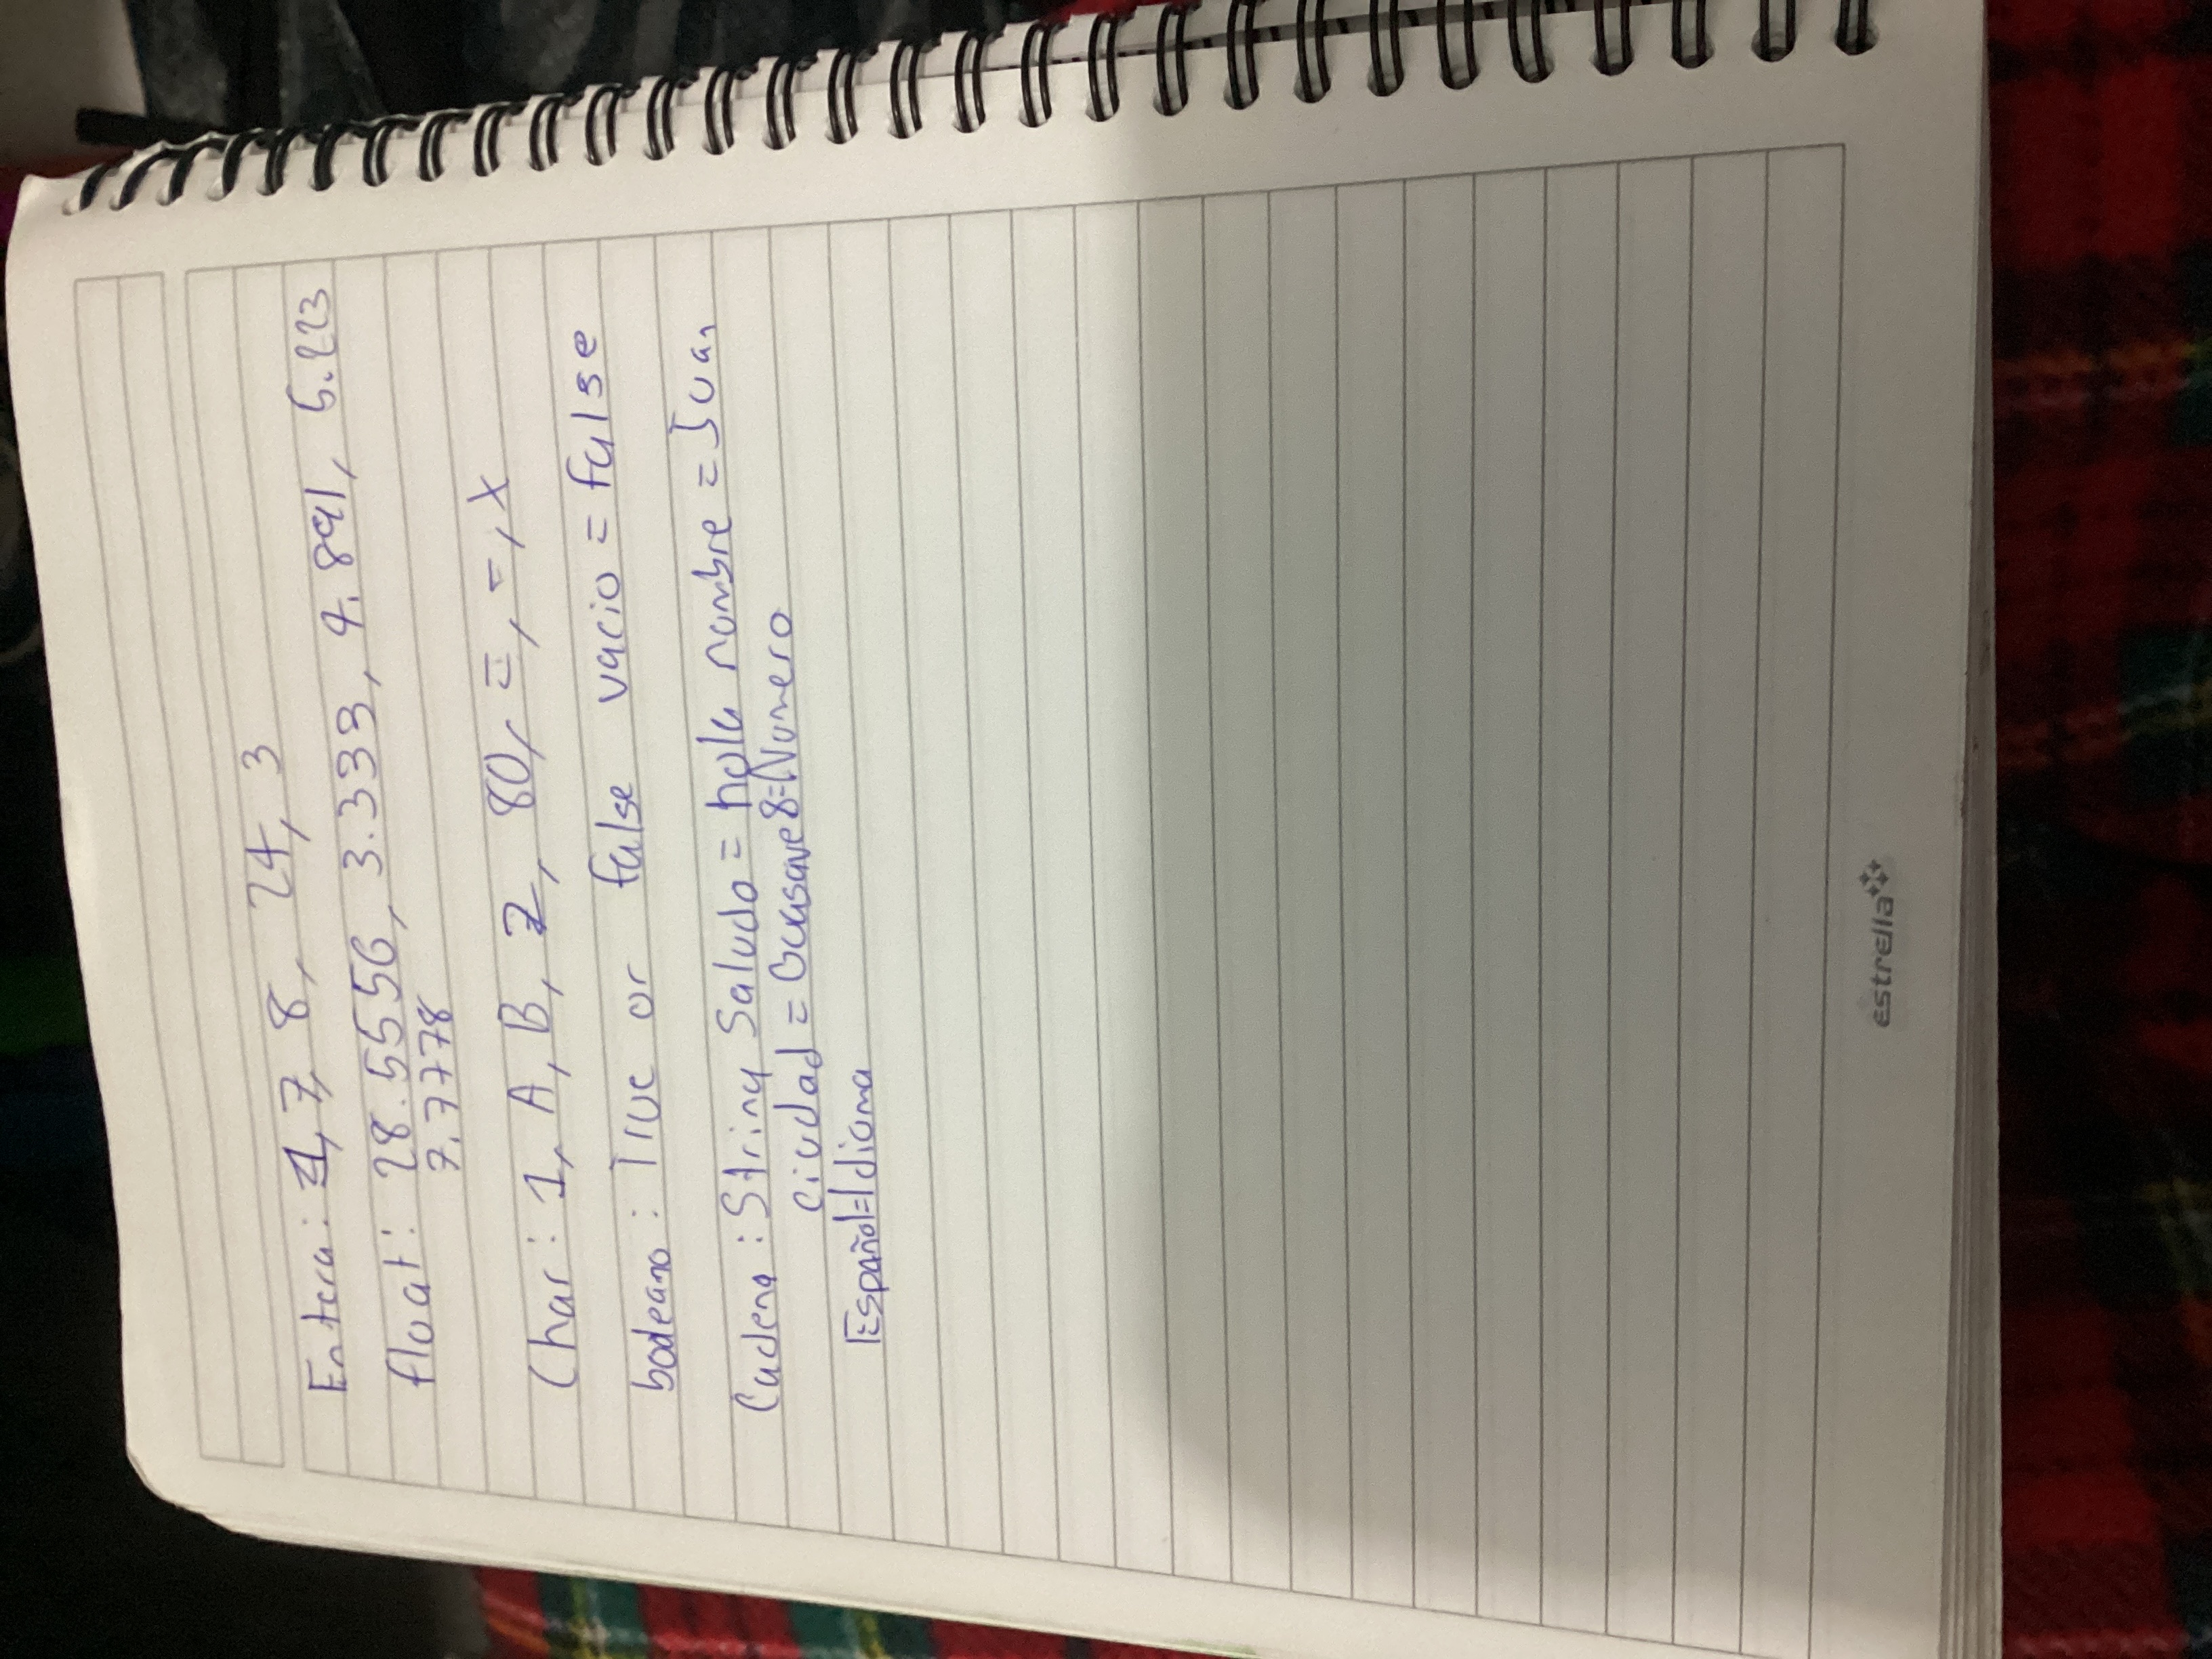 Entera: 4, 7, 8, 24, 3
float: 28.5556, 3.333, 9.891, 5.223
7.7778
Char: 1, A, B, Z, 80, =, -, x
booleano: True or false vacio = false
Cadena: String Saludo = hola nombre = Juan
ciudad = Guasave 8=Numero
Español=Idioma
estrella